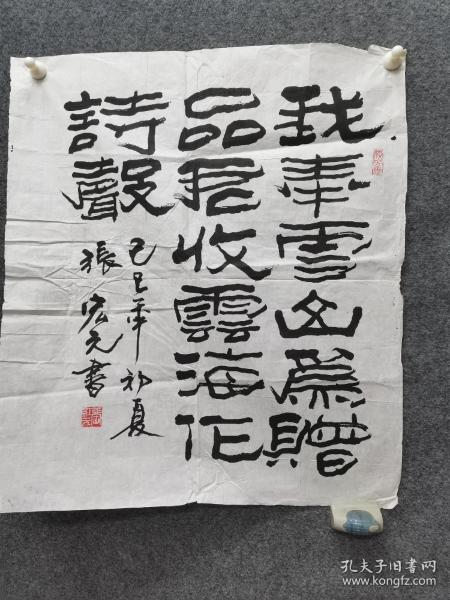 我奉雪山為贈
品君收雲海作
詩聲
己巳年初夏
張宏元書
孔夫子旧书网
www.kongfz.com